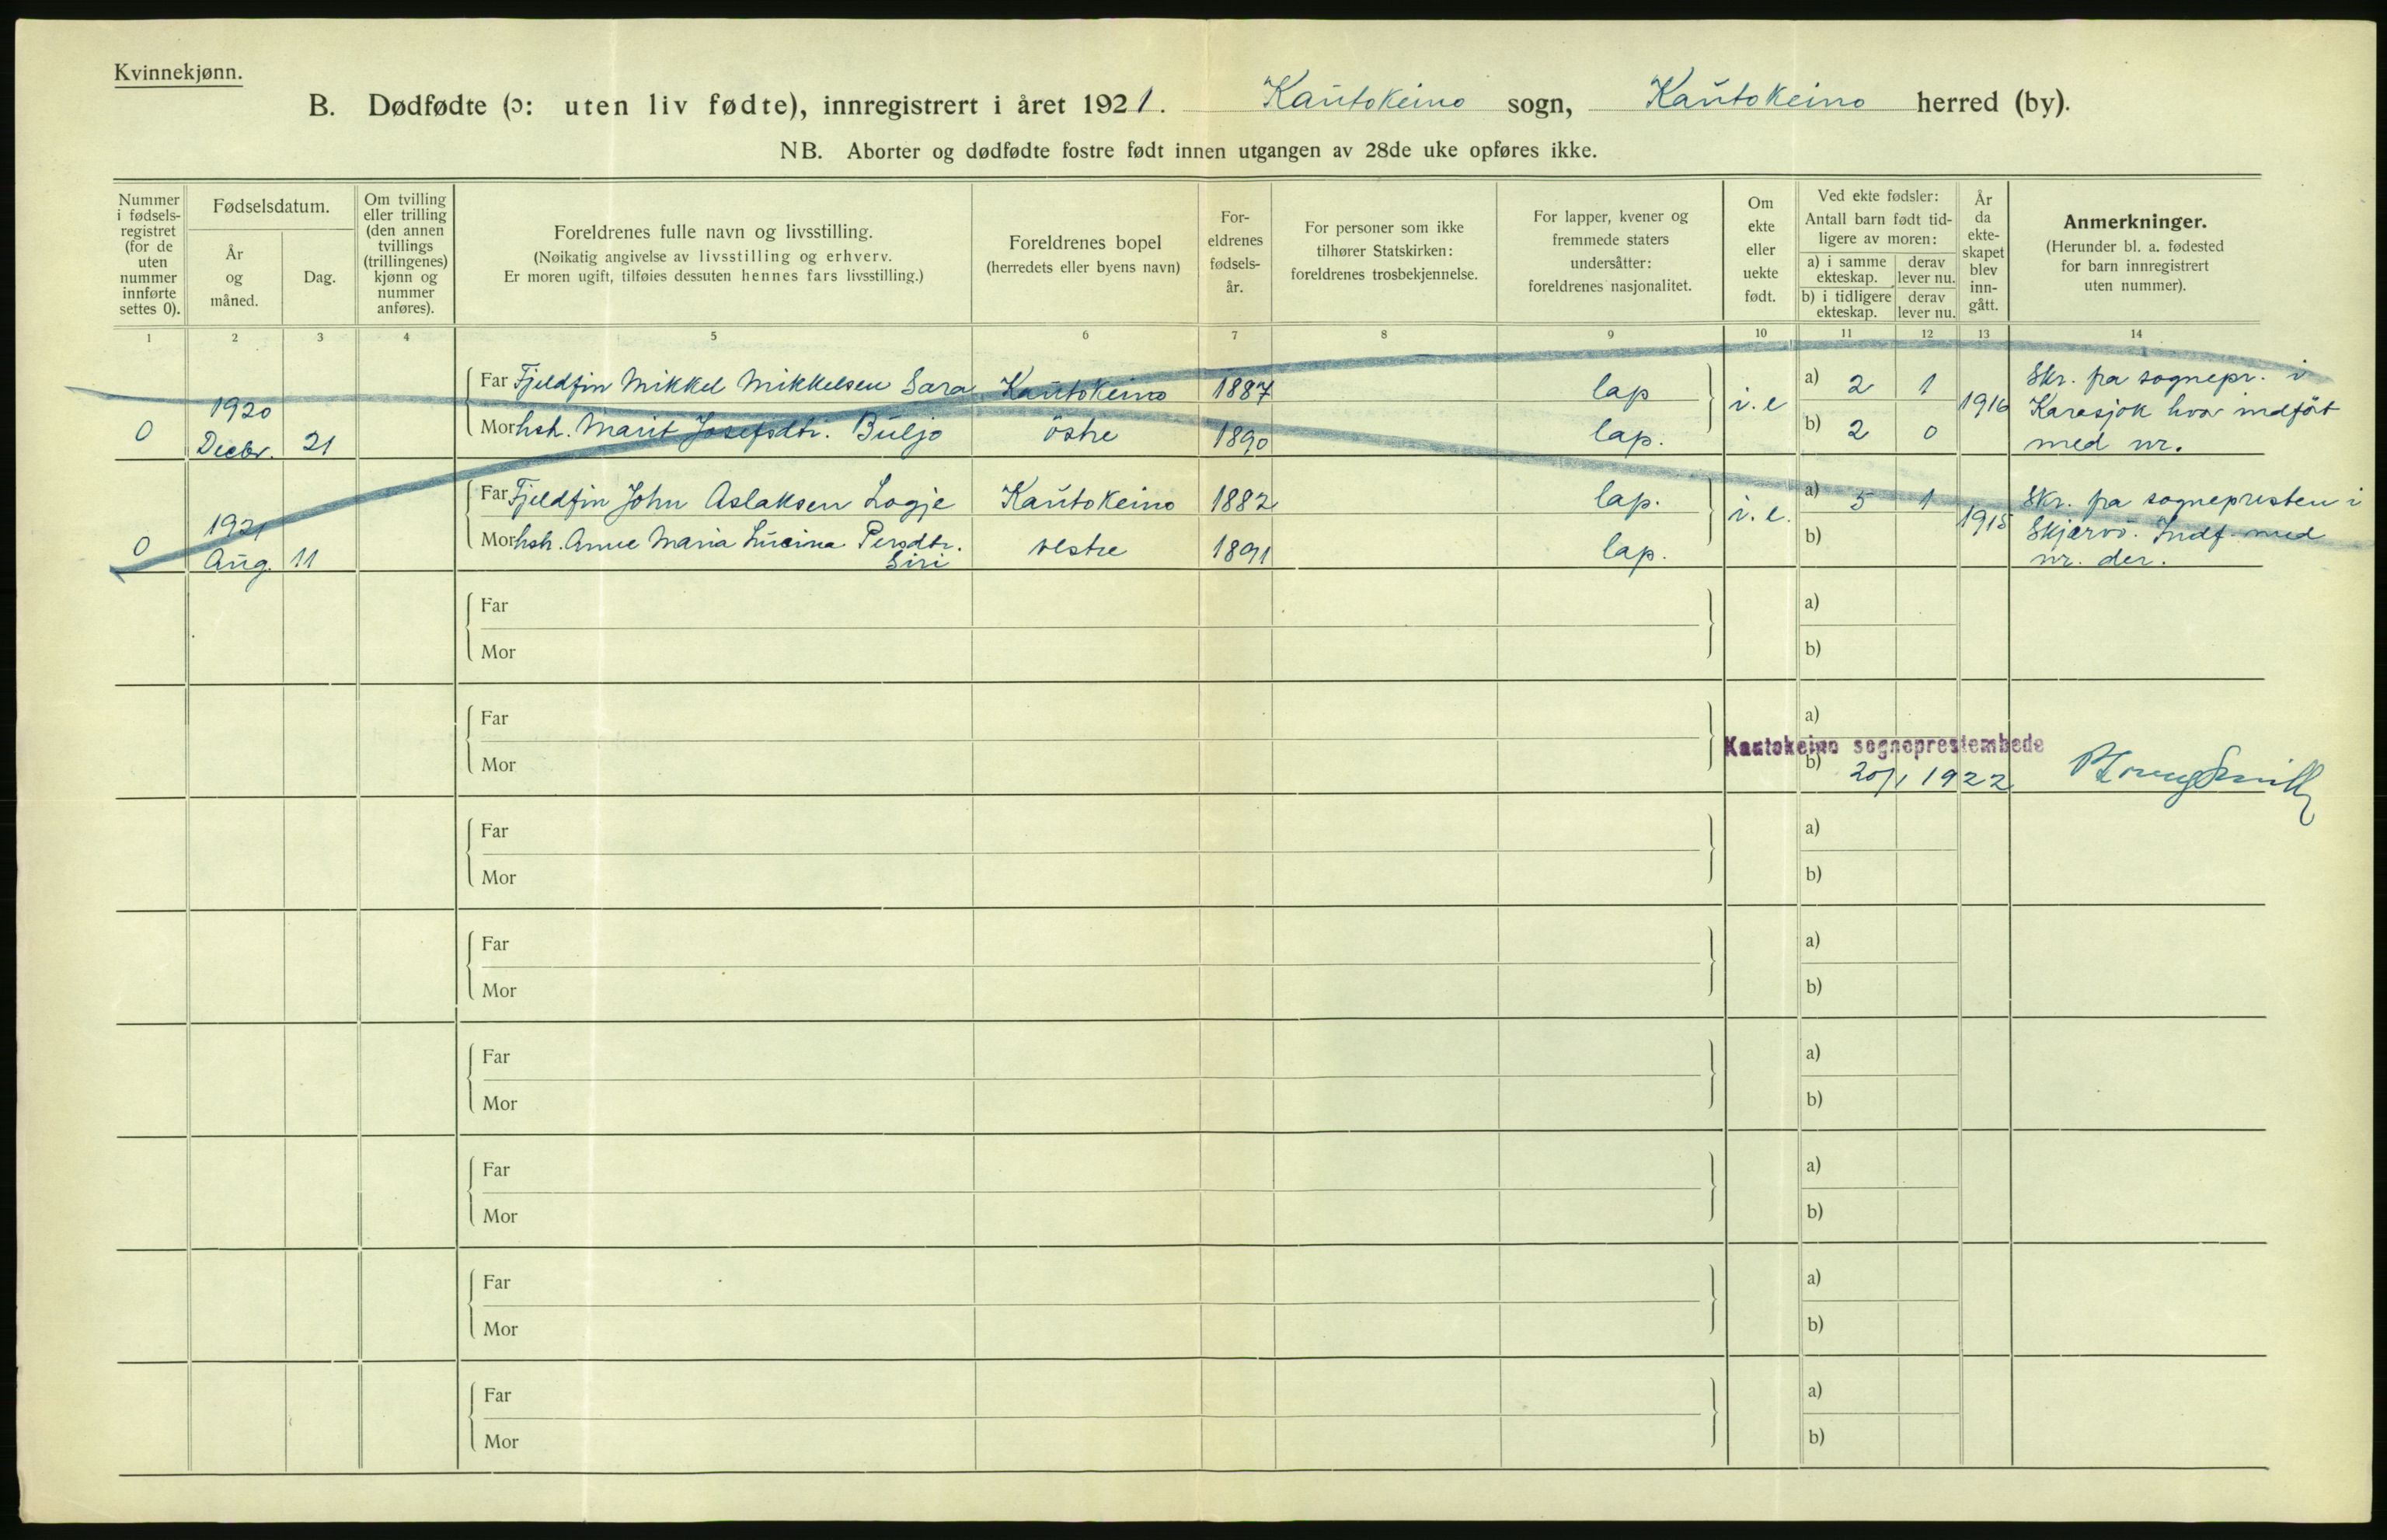 Kvinnekjønn.
B. Dødfødte (ɔ: uten liv fødte), innregistrert i året 1921. Kautokeino sogn, Kautokeino herred (by).
NB. Aborter og dødfødte fostre født innen utgangen av 28de uke opføres ikke.
Nummer
i fødsels-
registret
(for de
uten
nummer
innførte
settes 0).
Fødselsdatum.
År
og
måned.
Dag.
Om tvilling
eller trilling
(den annen
tvillings
(trillingenes)
kjønn og
nummer
anføres).
Foreldrenes fulle navn og livsstilling.
(Nøikatig angivelse av livsstilling og erhverv.
Er moren ugift, tilføies dessuten hennes fars livsstilling.)
Foreldrenes bopel
(herredets eller byens navn)
For-
eldrenes
fødsels-
år.
For personer som ikke
tilhører Statskirken:
foreldrenes trosbekjennelse.
For lapper, kvener og
fremmede staters
undersåtter:
foreldrenes nasjonalitet.
Om
ekte
eller
uekte
født.
Ved ekte fødsler:
Antall barn født tid-
ligere av moren:
a) i samme
ekteskap.
derav
lever nu.
b) i tidligere
ekteskap.
derav
lever nu.
År
da
ekte-
skapet
blev
inn-
gått.
Anmerkninger.
(Herunder bl. a. fødested
for barn innregistrert
uten nummer).
1 2 3 4 5 6 7 8 9 10 11 12 13 14
0 1920 Decbr. 21
Far Fjeldfin Mikkel Mikkelsen Sara Kautokeino 1887 lap
Mor hsh. Marit Josefsdtr. Buljo östre 1890 lap.
i. e
a) 2 1
b) 2 0
1916
Skr. fra sognepr. i
Karasjok hvor indført
med nr.
0 1921 Aug. 11
Far Fjeldfin John Aslaksen Logje Kautokeino 1882 lap.
Mor hsh. Anne Maria Lucina Persdtr. vestre 1891 lap.
Siri
i. e.
a) 5 1
b)
1915
Skr. fra sognepresten i
Skjærvö. Indf. med
nr. der.
Far a)
Mor b)
Far a)
Mor b)
Kautokeino sogneprestembede
20/1 1922
Far a)
Mor b)
Far a)
Mor b)
Far a)
Mor b)
Far a)
Mor b)
Far a)
Mor b)
Far a)
Mor b)